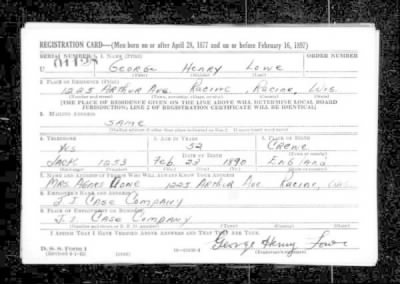 REGISTRATION CARD—(Men born on or after April 28, 1877 and on or before February 16, 1897)
SERIAL NUMBER 1. NAME (Print) ORDER NUMBER
U George Henry Lowe
(First) (Middle) (Last)
2. PLACE OF RESIDENCE (Print)
1225 Arthur Ave Racine, Racine, Wis.
(Number and street) (Town, township, village, or city) (County) (State)
[THE PLACE OF RESIDENCE GIVEN ON THE LINE ABOVE WILL DETERMINE LOCAL BOARD
JURISDICTION; LINE 2 OF REGISTRATION CERTIFICATE WILL BE IDENTICAL]
3. MAILING ADDRESS
Same
[Mailing address if other than place indicated on line 2. If same insert word same]
4. TELEPHONE 5. AGE IN YEARS 6. PLACE OF BIRTH
Yes 52 Crewe
DATE OF BIRTH (Town or county)
Jack 1253 Feb. 23 1890 England
(Mo.) (Day) (Yr.) (State or country)
7. NAME AND ADDRESS OF PERSON WHO WILL ALWAYS KNOW YOUR ADDRESS
Mrs. Agnes Lowe 1225 Arthur Ave Racine, Wis.
8. EMPLOYER'S NAME AND ADDRESS
J I Case Company
9. PLACE OF EMPLOYMENT OR BUSINESS
J. I. Case Company
(Number and street or R. F. D. number) (Town) (County) (State)
I AFFIRM THAT I HAVE VERIFIED ABOVE ANSWERS AND THAT THEY ARE TRUE.
George Henry Lowe
D. S. S. Form 1
(Revised 4-1-42) (over) (Registrant's signature)